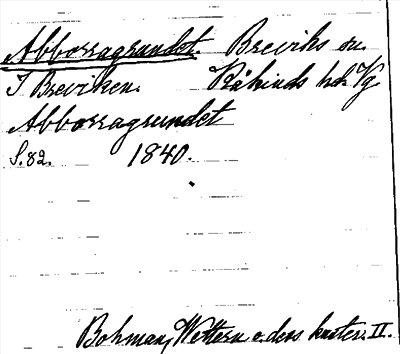 Abborragrundet. Breviks sn
I Breviken. Kåkinds hd Vg
Abborragrundet
S. 82. 1840.
Bohman, Wettern o. dess kuster. II.